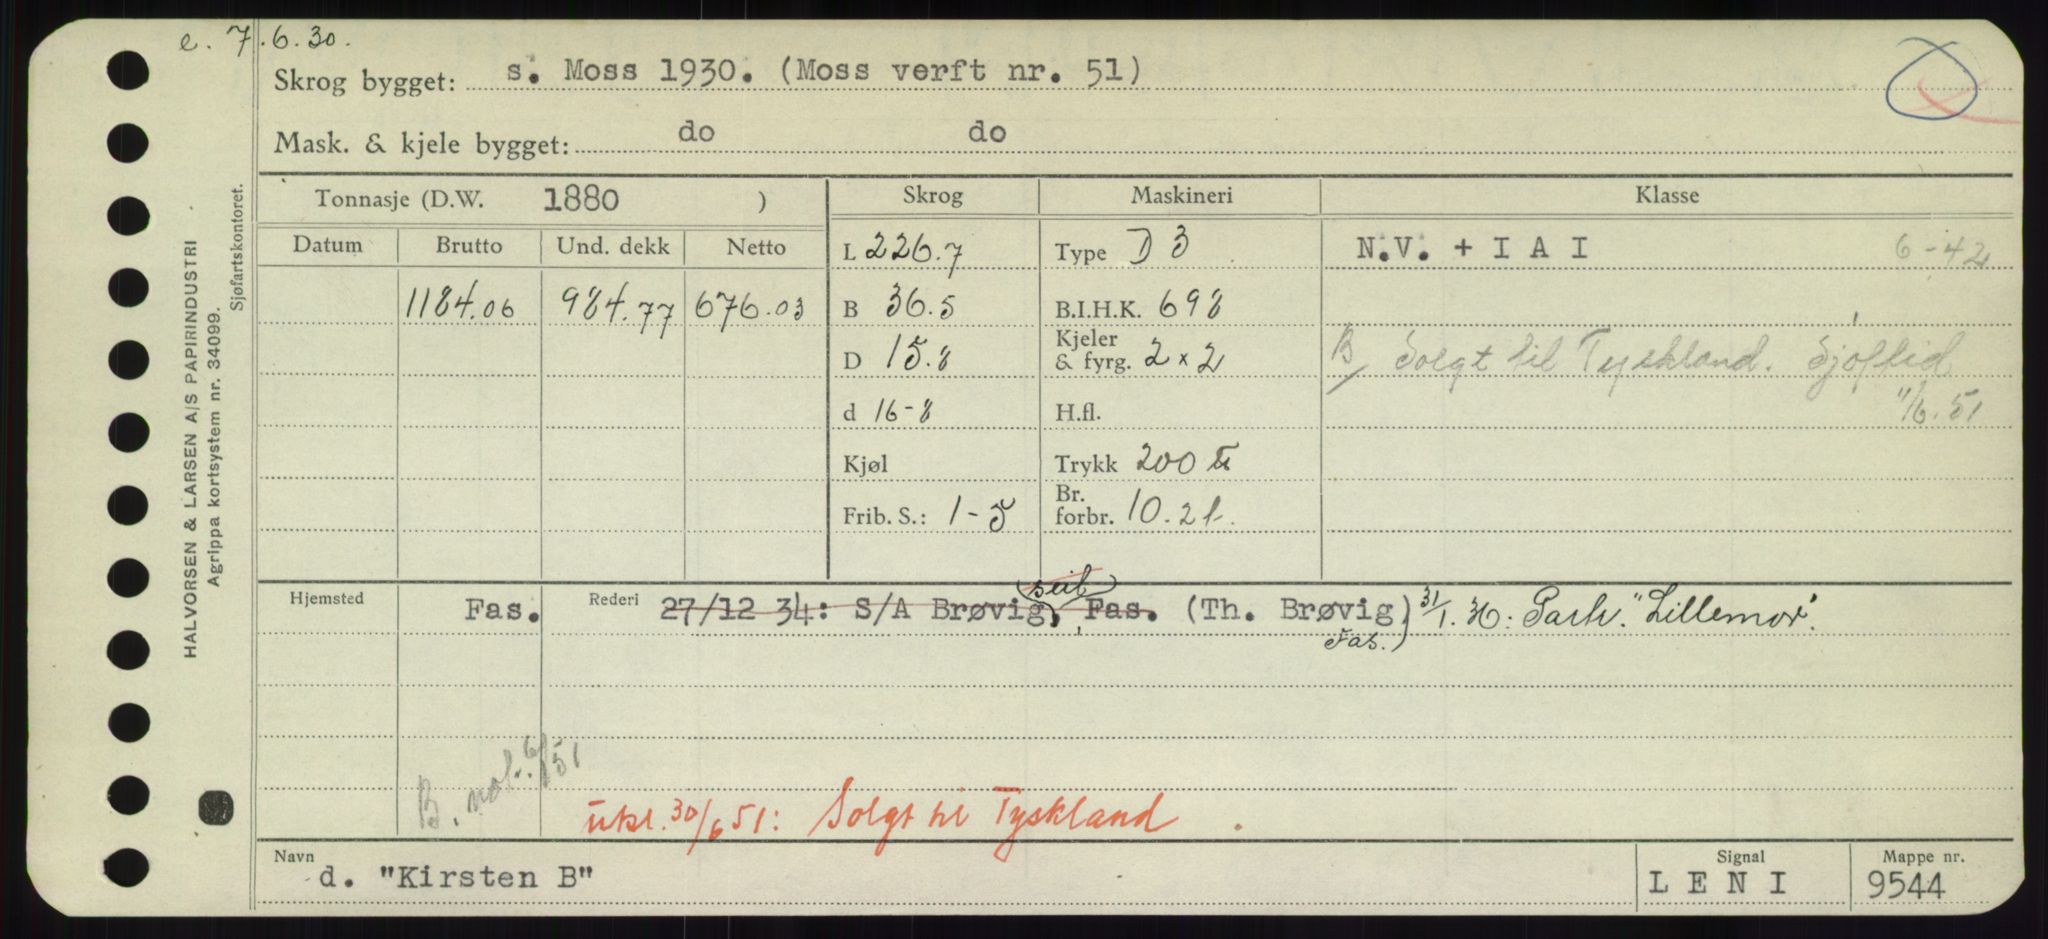 e. 7.6.30.
Skrog bygget: s. Moss 1930. (Moss verft nr. 51)
Mask. & kjele bygget: do do
Tonnasje (D.W. 1880 )
Skrog
Maskineri
Klasse
Datum Brutto Und. dekk Netto
L 226.7
Type D 3
N.V. + I A I 6-42
1184.06 984.77 676.03
B 36.5
B.I.H.K. 698
D 15.8
Kjeler & fyrg. 2 x 2
B/ Solgt til Tyskland. Sjøftid
11/6.51
d 16-8
H.fl.
Kjøl
Trykk 200 lb
Frib. S.: 1-5
Br. forbr. 10.2 t.
Hjemsted Fas.
Rederi 27/12 34: S/A Brøvig, Fas. (Th. Brøvig, Fas.) 31/1. 40: Partr. "Lillemor".
B. not. 6/51
utsl. 30/6 51: Solgt til Tyskland
Navn d. "Kirsten B"
Signal L E N I
Mappe nr. 9544
HALVORSEN & LARSEN A/S PAPIRINDUSTRI
Agrippa kortsystem nr. 34099.
Sjøfartskontoret.